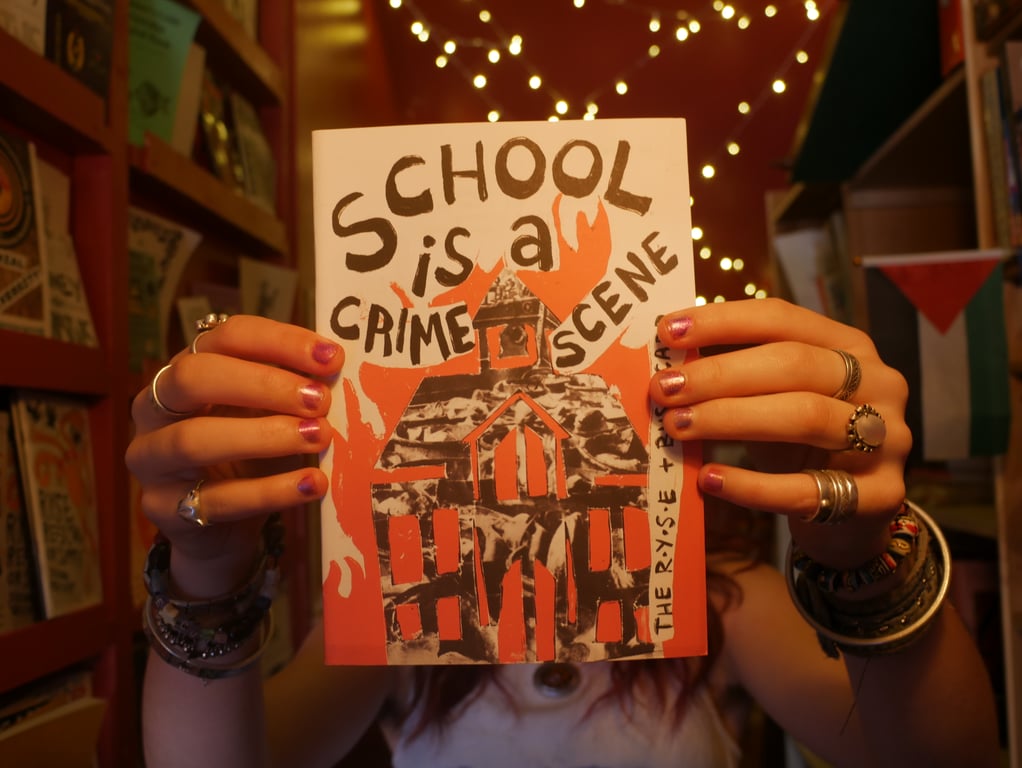 SCHOOL
iS a
CRIME SCENE
THE R.Y.S.E +